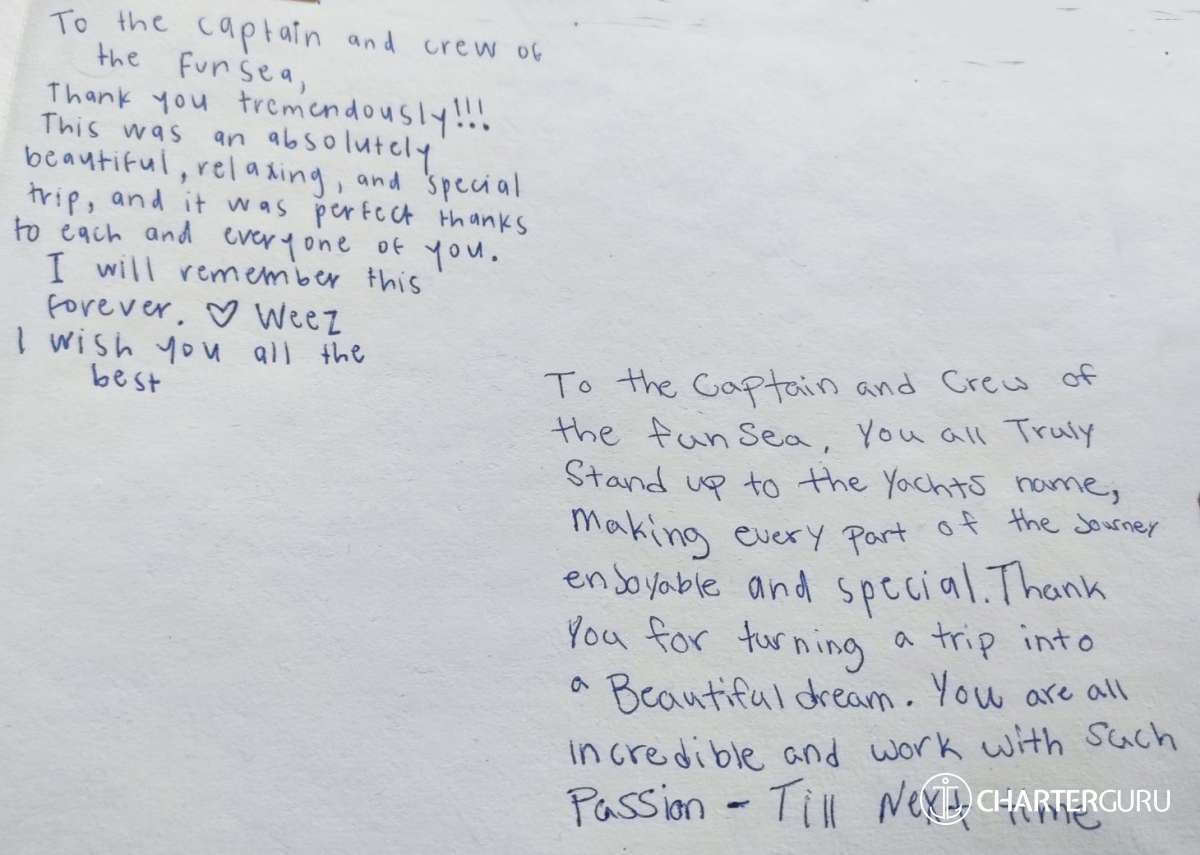 To the captain and crew of
the Fun Sea,
Thank you tremendously!!!
This was an absolutely
beautiful, relaxing, and special
trip, and it was perfect thanks
to each and everyone of you.
I will remember this
forever. ♡ Weez
I wish you all the
best
To the Captain and Crew of
the fun Sea, You all Truly
Stand up to the Yachts name,
Making every part of the Journey
enJoyable and special. Thank
You for turning a trip into
a Beautiful dream. You are all
incredible and work with Such
Passion - Till Next time
CHARTERGURU